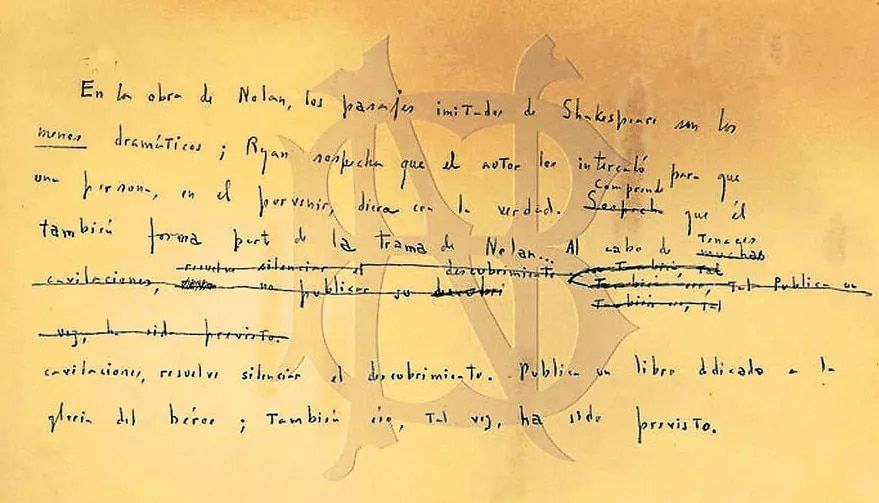 En la obra de Nolan, los pasajes imitados de Shakespeare son los
menos dramáticos; Ryan sospecha que el autor los intercaló para que
comprende
una persona, en el porvenir, diera con la verdad. Sospecha que él
tenaces
también forma part de la trama de Nolan... Al cabo de muchas
resuelve silenciar el descubrimiento también, tal
cavilaciones, no publicar su descubri también eso, tal Publica un
también eso, tal
vez, ha sido previsto.
cavilaciones, resuelve silenciar el descubrimiento. Publica un libro ddicado a la
gloria del héroe; también eso, tal vez, ha sido previsto.